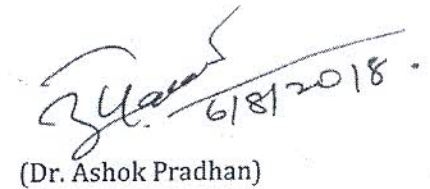 6/8/2018.
(Dr. Ashok Pradhan)